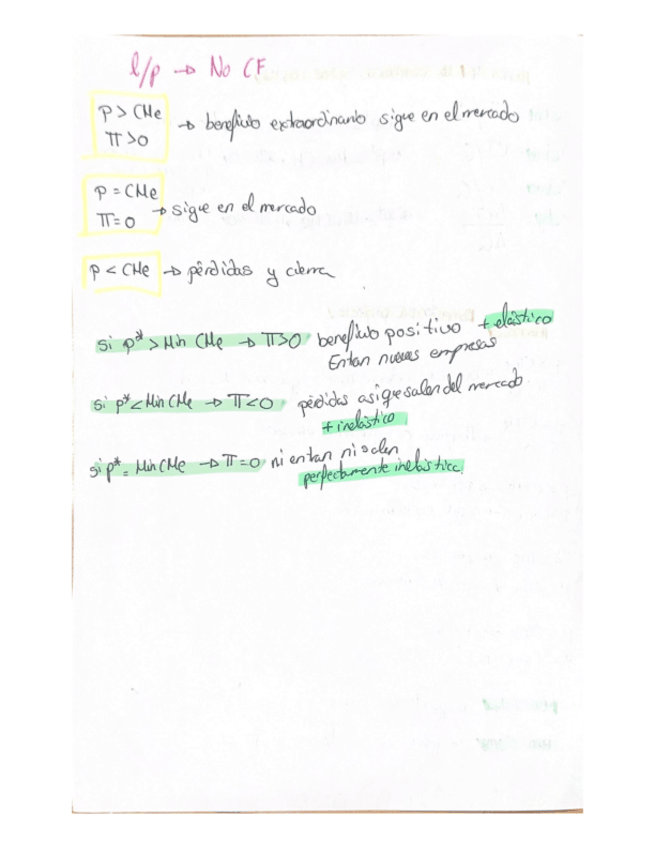 l/p → No CF
p > CMe
π > 0
→ beneficio extraordinario sigue en el mercado
p = CMe
π = 0
→ sigue en el mercado
p < CMe → pérdidas y cierra
si p* > Min CMe → π>0 beneficio positivo + elástico
Entan nuevas empresas
si p* < Min CMe → π<0 pérdidas asi que salen del mercado
+ inelástico
si p* = Min CMe → π=0 ni entan ni salen
perfectamente inelástica.